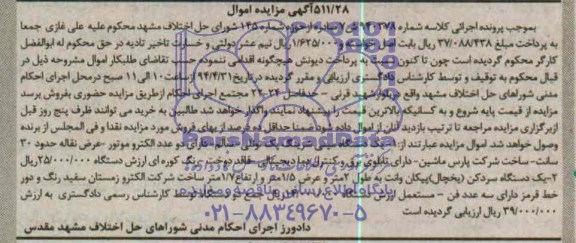 ۵۱۱/۲۸آگهی مزایده اموال
بموجب پرونده اجرائی کلاسه شماره صادره از حوزه شماره ۱۴۵ شورای حل اختلاف مشهد محکوم علیه علی غازی جمعا
به پرداخت مبلغ ۳۷/۰۸۸/۴۳۸ ریال بابت اصل و ۱/۶۲۵/۰۰۰ ریال نیم عشر دولتی و خسارت تاخیر تادیه در حق محکوم له ابوالفضل
کارگر محکوم گردیده است چون تا کنون نسبت به پرداخت دیونش هیچگونه اقدامی ننموده حسب تقاضای طلبکار اموال مشروحه ذیل در
قبال محکوم به توقیف و توسط کارشناس دادگستری ارزیابی و مقرر گردیده در تاریخ ۹۴/۴/۳۱ از ساعت ۱۰ الی ۱۱ صبح در محل اجرای احکام
مدنی شوراهای حل اختلاف مشهد واقع در بلوار شهید قرنی – حدفاصل ۲۲-۲۴ مجتمع اجرای احکام از طریق مزایده حضوری بفروش برسد
مزایده از قیمت پایه شروع و به کسانیکه بالاترین قیمت را پیشنهاد نمایند واگذار خواهد شد طالبین به خرید می توانند ظرف پنج روز قبل
از برگزاری مزایده مراجعه تا ترتیب بازدید آنان از اموال داده شود ضمنا حداقل ده درصد از بهای فروش مورد مزایده نقدا و فی المجلس از برنده
وصول خواهد شد اموال مزایده عبارتند از: دو عدد الکترو موتور -عرض نقاله حدود ۳۰
سانت- ساخت شرکت پارس ماشین- دارای تابلوی برق و کنترل دما دیجیتالی- فاقد دوخت- رنگ کوره ای ارزش دستگاه ۲۵/۰۰۰/۰۰۰ریال
۲-یک دستگاه سردکن (یخچال)پیکان وانت به طول ۲متر و عرض ۱/۵متر و ارتفاع۱/۷متر ساخت شرکت الکترو زمستان سفید رنگ و دور
خط قرمز دارای سه عدد فن – مستعمل ارزش دستگاه ریال جمع دو دستگاه توسط کارشناس رسمی دادگستری به ارزش
۳۹/۰۰۰/۰۰۰ ریال ارزیابی گردیده است
دادورز اجرای احکام مدنی شوراهای حل اختلاف مشهد مقدس
پایگاه اطلاع رسانی مناقصه و مزایده
۰۲۱-۸۸۳۴۹۶۷۰-۵